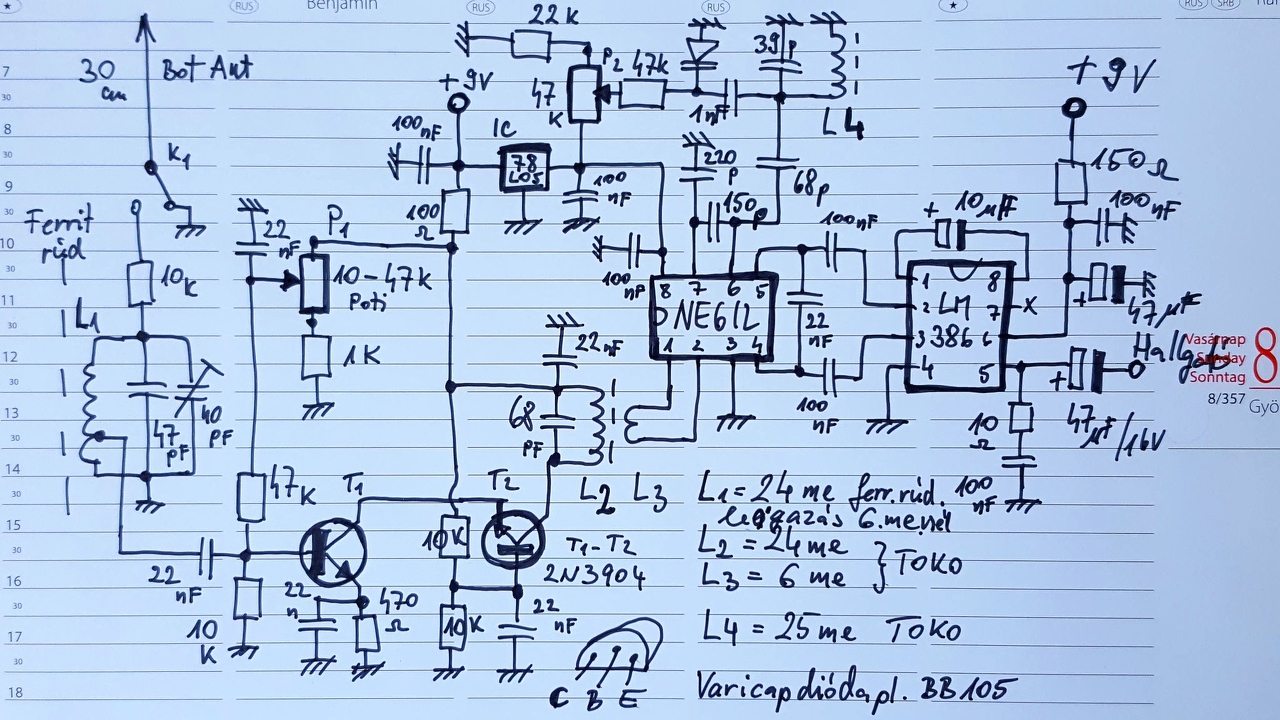 RUS
Benjamin
RUS
RUS
RUS
SRB
30 cm
Bot Ant
K1
Ferrit rúd
10K
L1
47 pF
40 pF
22 nF
P1
10-47k
Poti
1K
47K
22 nF
10 K
T1
22 n
470 Ω
22K
P2
47 K
47k
+9V
100 nF
IC
78 L05
100 nF
100 Ω
1nF
39 p
L4
220 p
68p
150 p
100 nF
100nF
8 7 6 5
NE612
1 2 3 4
22 nF
100 nF
22 nF
68 pF
L2 L3
T2
10K
10K
22 nF
T1-T2
2N3904
C B E
10µF
1 8
2 LM 7 X
3 386 6
4 5
+9V
150 Ω
100 nF
47µF
Hallgató
47 µF/16V
10 Ω
100 nF
L1 = 24 me ferr.rúd.
leágazás 6.menél
L2 = 24 me
L3 = 6 me
TOKO
L4 = 25 me TOKO
Varicap dióda pl. BB105
Vasárnap
Sunday
Sonntag
8
8/357
Gyö
7
30
8
30
9
30
10
30
11
30
12
30
13
30
14
30
15
30
16
30
17
30
18